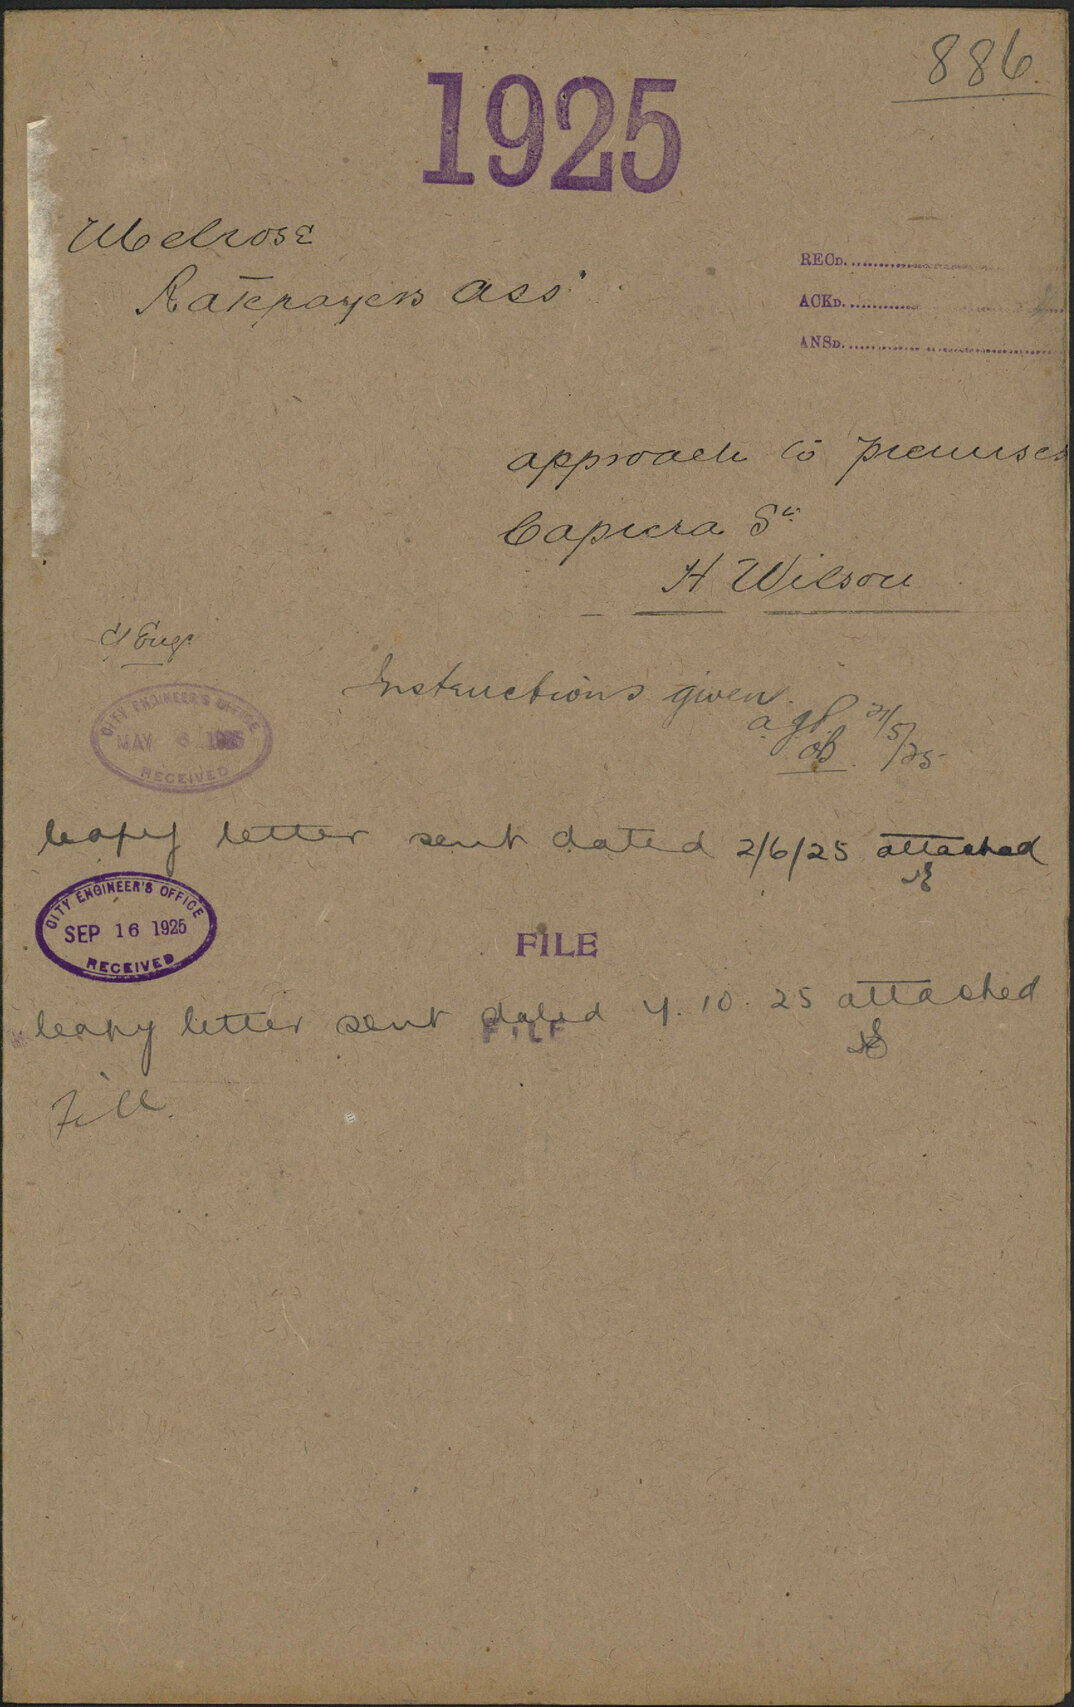 886
1925
Melrose
Ratepayers Ass'
RECD.
ACKD.
ANSD.
approach to premises
Capiera St
H Wilson
C/ Engr
CITY ENGINEER'S OFFICE
MAY 6 1925
RECEIVED
Instructions given.
21/5/25
Copy letter sent dated 2/6/25 attached
CITY ENGINEER'S OFFICE
SEP 16 1925
RECEIVED
FILE
Copy letter sent dated 4.10.25 attached
FILE
File.